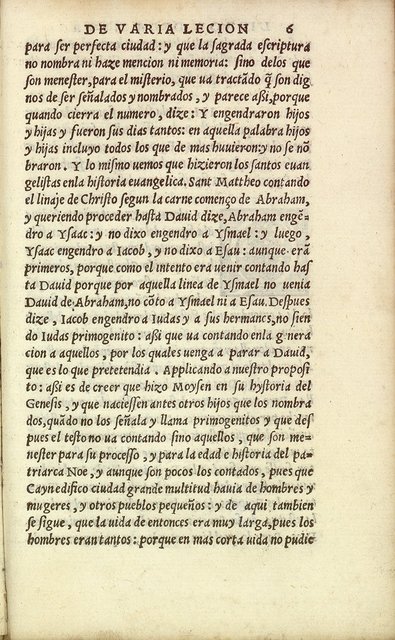 DE VARIA LECION 6
para ser perfecta ciudad: y que la sagrada escriptura
no nombra ni haze mencion ni memoria: sino delos que
son menester, para el misterio, que va tractãdo q̃ son dig
nos de ser señalados y nombrados, y parece aßi, porque
quando cierra el numero, dize: Y engendraron hijos
y hijas y fueron sus dias tantos: en aquella palabra hijos
y hijas incluyo todos los que de mas huuieron: y no se nõ
braron. Y lo mismo vemos que hizieron los santos euan
gelistas enla historia euangelica. Sant Mattheo contando
el linaje de Christo segun la carne començo de Abraham,
y queriendo proceder hasta Dauid dize, Abraham engẽ=
dro a Ysaac: y no dixo engendro a Ysmael: y luego,
Ysaac engendro a Iacob, y no dixo a Esau: aunque erã
primeros, porque como el intento era venir contando has
ta Dauid porque por aquella linea de Ysmael no venia
Dauid de Abraham, no cõto a Ysmael ni a Esau. Despues
dize, Iacob engendro a Iudas y a sus hermancs, no sien
do Iudas primogenito: aßi que va contando enla g nera
cion a aquellos, por los quales venga a parar a Dauid,
que es lo que pretetendia. Applicando a nuestro proposi
to: aßi es de creer que hizo Moysen en su hystoria del
Genesis, y que naciessen antes otros hijos que los nombra
dos, quãdo no los señala y llama primogenitos y que des
pues el testo no va contando sino aquellos, que son me=
nester para su processo, y para la edad e historia del pa=
triarca Noe, y aunque son pocos los contados, pues que
Cayn edifico ciudad grande multitud hauia de hombres y
mugeres, y otros pueblos pequeños: y de aqui tambien
se sigue, que la vida de entonces era muy larga, pues los
hombres eran tantos: porque en mas corta vida no pudie